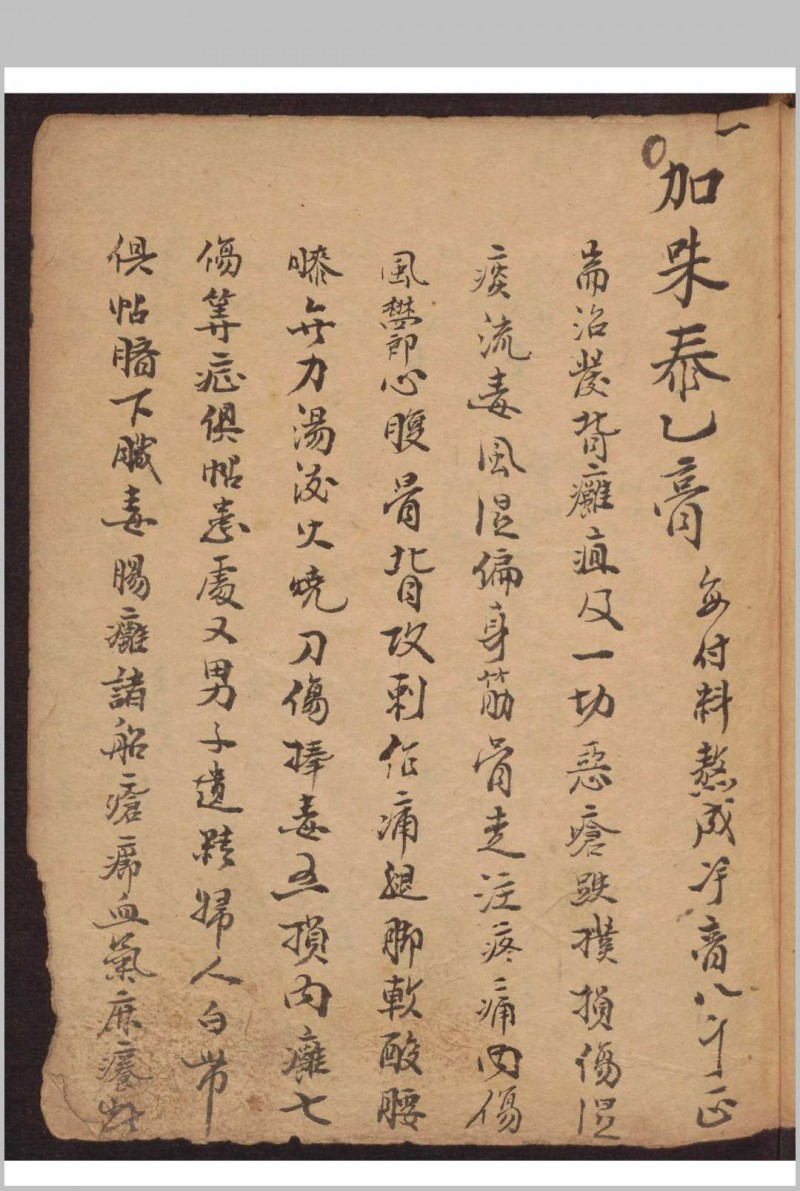 加味泰乙膏 每付料熬成净膏八斤正
耑治發背癰疽及一切惡瘡跌撲損傷湿
痰流毒風湿偏身筋骨走注疼痛內傷
風鬱節心腹胷背攻刺作痛腿脚軟酸腰
膝無力湯泼火燒刀傷捧毒五損內癰七
傷等症俱帖患處又男子遺精婦人白帶
俱帖臍下臟毒腸癰諸般瘡癤血氣麻癢